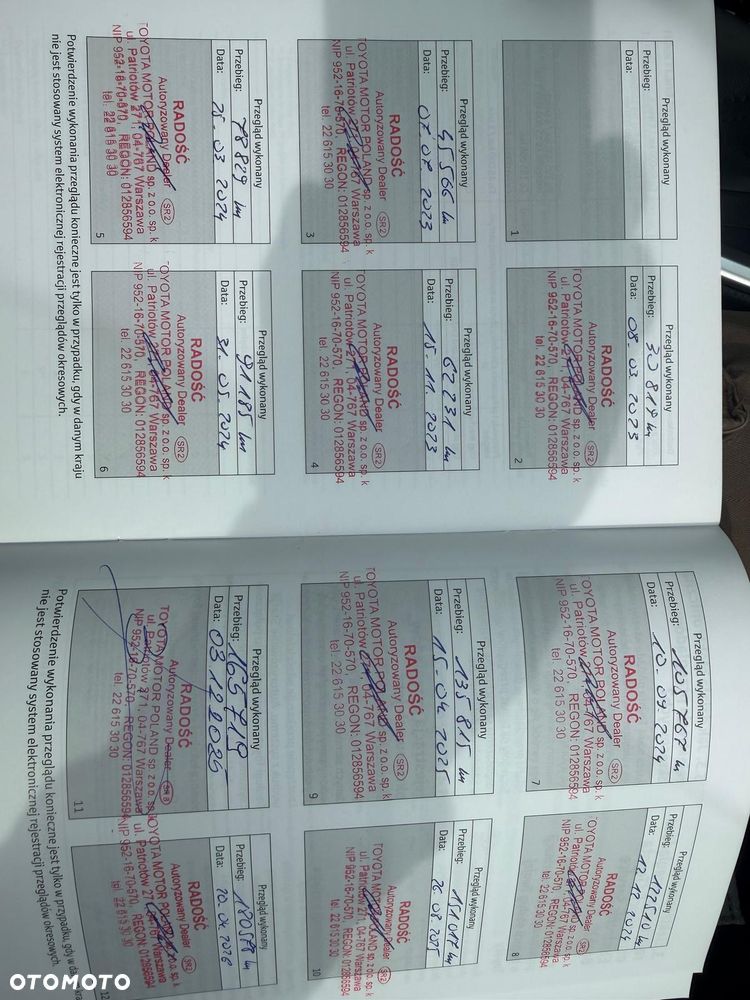 Przegląd wykonany
Przebieg:
Data:
1
Przegląd wykonany
Przebieg: 30 819 km
Data: 08 03 2023
RADOŚĆ
Autoryzowany Dealer SR2
TOYOTA MOTOR POLAND sp. z o.o. sp. k
ul. Patriotów 271, 04-767 Warszawa
NIP 952-16-70-570, REGON: 012856594
tel. 22 615 30 30
2
Przegląd wykonany
Przebieg: 45 566 km
Data: 07.07 2023
RADOŚĆ
Autoryzowany Dealer SR2
TOYOTA MOTOR POLAND sp. z o.o. sp. k
ul. Patriotów 271, 04-767 Warszawa
NIP 952-16-70-570, REGON: 012856594
tel. 22 615 30 30
3
Przegląd wykonany
Przebieg: 62 231 km
Data: 15 11. 2023
RADOŚĆ
Autoryzowany Dealer SR2
TOYOTA MOTOR POLAND sp. z o.o. sp. k
ul. Patriotów 271, 04-767 Warszawa
NIP 952-16-70-570, REGON: 012856594
tel. 22 615 30 30
4
Przegląd wykonany
Przebieg: 78 829 km
Data: 25. 03 2024
RADOŚĆ
Autoryzowany Dealer SR2
TOYOTA MOTOR POLAND sp. z o.o. sp. k
ul. Patriotów 271, 04-767 Warszawa
NIP 952-16-70-570, REGON: 012856594
tel. 22 615 30 30
5
Przegląd wykonany
Przebieg: 91 185 km
Data: 31. 05 2024
RADOŚĆ
Autoryzowany Dealer SR2
TOYOTA MOTOR POLAND sp. z o.o. sp. k
ul. Patriotów 271, 04-767 Warszawa
NIP 952-16-70-570, REGON: 012856594
tel. 22 615 30 30
6
Potwierdzenie wykonania przeglądu konieczne jest tylko w przypadku, gdy w danym kraju
nie jest stosowany system elektronicznej rejestracji przeglądów okresowych.
Przegląd wykonany
Przebieg: 105 767 km
Data: 10. 09 2024
RADOŚĆ
Autoryzowany Dealer SR2
TOYOTA MOTOR POLAND sp. z o.o. sp. k
ul. Patriotów 271, 04-767 Warszawa
NIP 952-16-70-570, REGON: 012856594
tel. 22 615 30 30
7
Przegląd wykonany
Przebieg: 122 510 km
Data: 12 12 2024
RADOŚĆ
Autoryzowany Dealer SR2
TOYOTA MOTOR POLAND sp. z o.o. sp. k
ul. Patriotów 271, 04-767 Warszawa
NIP 952-16-70-570, REGON: 012856594
tel. 22 615 30 30
8
Przegląd wykonany
Przebieg: 135 815 km
Data: 15. 04 2025
RADOŚĆ
Autoryzowany Dealer SR2
TOYOTA MOTOR POLAND sp. z o.o. sp. k
ul. Patriotów 271, 04-767 Warszawa
NIP 952-16-70-570, REGON: 012856594
tel. 22 615 30 30
9
Przegląd wykonany
Przebieg: km
Data: 26 08 2025
RADOŚĆ
Autoryzowany Dealer SR2
TOYOTA MOTOR POLAND sp. z o.o. sp. k
ul. Patriotów 271, 04-767 Warszawa
NIP 952-16-70-570, REGON: 012856594
tel. 22 615 30 30
10
Przegląd wykonany
Przebieg: 165719
Data: 03 12 2025
RADOŚĆ
Autoryzowany Dealer
TOYOTA MOTOR POLAND sp. z o.o. sp. k
ul. Patriotów 271, 04-767 Warszawa
NIP 952-16-70-570, REGON: 012856594
tel. 22 615 30 30
11
Przegląd wykonany
Przebieg: km
Data: 20. 04 2026
RADOŚĆ
Autoryzowany Dealer SR2
TOYOTA MOTOR POLAND sp. z o.o. sp. k
ul. Patriotów 271, 04-767 Warszawa
NIP 952-16-70-570, REGON: 012856594
tel. 22 615 30 30
12
Potwierdzenie wykonania przeglądu konieczne jest tylko w przypadku, gdy w
nie jest stosowany system elektronicznej rejestracji przeglądów okresowych.
OTOMOTO